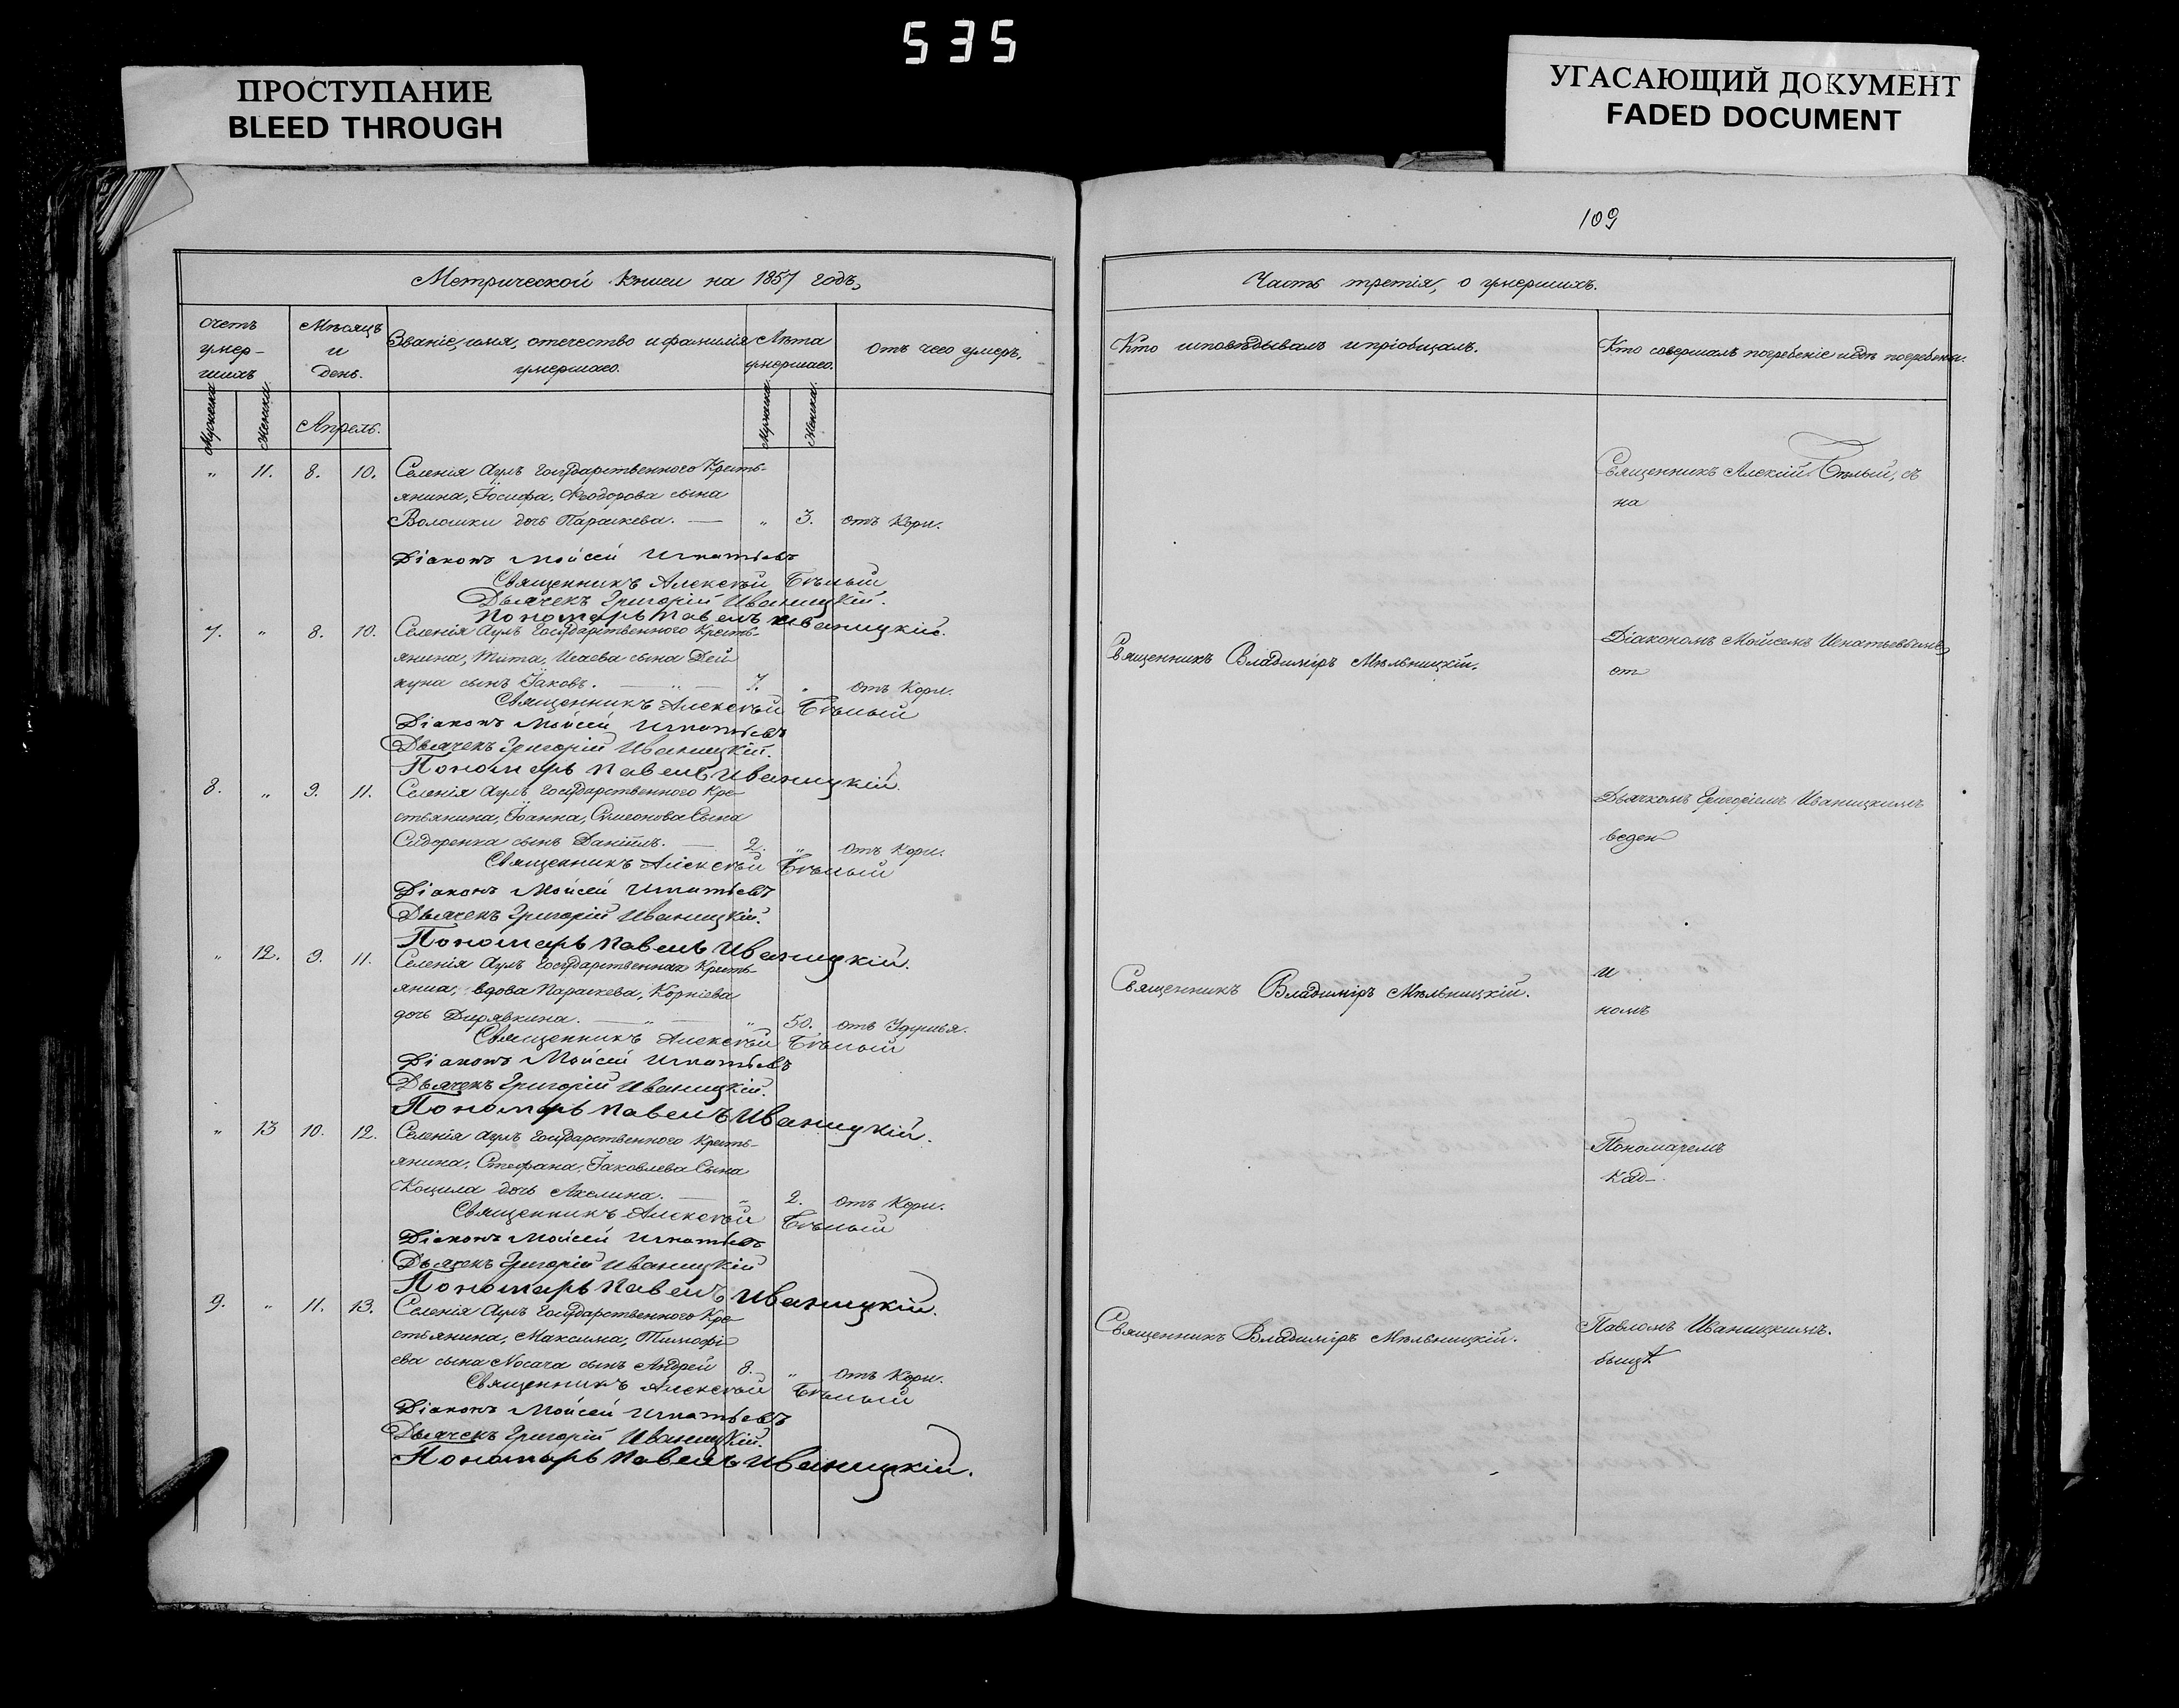 535
ПРОСТУПАНИЕ
BLEED THROUGH
УГАСАЮЩИЙ ДОКУМЕНТ
FADED DOCUMENT
Метрической книги на 1857 годъ,
Счетъ
умер-
шихъ
Мѣсяцъ
и
день.
Званіе, имя, отечество и фамилія
умершаго.
Лѣта
умершаго.
Отъ чего умеръ.
Мужеска
Женска.
Апрель.
Мужеска.
Женска.
„ 11. 8. 10. Селенія Аулъ Государственного Кресть-
янина, Іосифа, Ѳеодорова сына
Волошки дочь Параскева. — „ 3. отъ Кори.
Діаконъ Мойсей Игнатьевъ
Священникъ Алексѣй Бѣлый
Дьячекъ Григорій Иваницкій.
Пономарь Павелъ Иваницкій.
7. „ 8. 10. Селенія Аулъ Государственного Кресть-
янина, Тита, Исаева сына Дей
куна сынъ Іаковъ. — „ — 7. „ отъ Кори.
Священникъ Алексѣй Бѣлый
Діаконъ Мойсей Игнатьевъ
Дьячекъ Григорій Иваницкій.
Пономарь Павелъ Иваницкій.
8. „ 9. 11. Селенія Аулъ Государственного Кре-
стьянина, Іоанна, Сумеонова Сына
Сидоренка сынъ Даніилъ. — 2. „ отъ Кори.
Священникъ Алексѣй Бѣлый
Діаконъ Мойсей Игнатьевъ
Дьячекъ Григорій Иваницкій.
Пономарь Павелъ Иваницкій.
„ 12. 9. 11. Селенія Аулъ Государственная Кресть-
янка, вдова Параскева, Корніева
дочь Дирявкина. — „ — „ 50. отъ Удушья.
Священникъ Алексѣй Бѣлый
Діаконъ Мойсей Игнатьевъ
Дьячекъ Григорій Иваницкій.
Пономарь Павелъ Иваницкій.
„ 13 10. 12. Селенія Аулъ Государственного Кресть-
янина, Стефана, Іаковлева Сына
Коцила дочь Акелина. — „ 2. отъ Кори.
Священникъ Алексѣй Бѣлый
Діаконъ Мойсей Игнатьевъ
Дьячекъ Григорій Иваницкій
Пономарь Павелъ Иваницкій.
9. „ 11. 13. Селенія Аулъ Государственного Кре-
стьянина, Максима, Тимофі-
ева сына Носача сынъ Андрей 8. „ отъ Кори.
Священникъ Алексѣй Бѣлый
Діаконъ Мойсей Игнатьевъ
Дьячекъ Григорій Иваницкій.
Пономарь Павелъ Иваницкій.
109
Часть третія, о умершихъ.
Кто исповѣдывалъ и пріобщалъ.
Кто совершалъ погребеніе и гдѣ погребены.
Священникъ Алексій Бѣлый, съ
на
Священникъ Владиміръ Мѣльницкій.
Діакономъ Мойсеемъ Игнатьевымъ,
от
Дьячкомъ Григоріемъ Иваницкимъ
веден
Священникъ Владиміръ Мѣльницкій.
и
номъ
Пономаремъ
Клад-
Священникъ Владиміръ Мѣльницкій.
Павломъ Иваницкимъ.
бищѣ